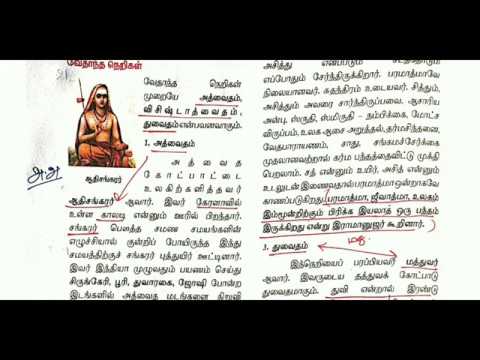 வேதாந்த நெறிகள்
வேதாந்த நெறிகள்
முறையே அத்வைதம்,
விசிஷ்டாத்வைதம்,
துவைதம் என்பவனவாகும்.
1. அத்வைதம்
அத்வைத
கோட்பாட்டை
உலகிற்களித்தவர்
அ.அ
ஆதிசங்கரர்
ஆதிசங்கரர் ஆவார். இவர் கேரளாவில்
உள்ள காலடி என்னும் ஊரில் பிறந்தார்.
சங்கரர் பௌத்த சமண சமயங்களின்
எழுச்சியால் குன்றிப் போயிருந்த இந்து
சமயத்திற்குச் சங்கரர் புத்துயிர் ஊட்டினார்.
இவர் இந்தியா முழுவதும் பயணம் செய்து
சிருங்கேரி, பூரி, துவாரகை, ஜோஷி போன்ற
இடங்களில் அத்வைத மடங்களை நிறுவி
அசித்து என்பபடும்
எப்போதும் சேர்ந்திருக்கிறார். பரமாத்மாவே
நிலையானவர். சுதந்திரம் உடையவர். சித்தும்,
அசித்தும் அவரை சார்ந்திருப்பவை. ஆசாரிய
அன்பு, ஸ்ருதி, ஸ்மிருதி - நம்பிக்கை, மோட்ச
விருப்பம், உலக ஆசை அறுத்தல், தர்மசிந்தனை,
வேதபாராயணம், சாது, சங்கமச்சேர்க்கை
முதலானவற்றால் கர்ம பந்தத்தைவிட்டு முக்தி
பெறலாம். சத் என்னும் உயிர், அசித் என்னும்
உடலுடன் இணைவதால் பரமாத்மா ஒன்றாகவே
காணப்படுகிறது. பரமாத்மா, ஜீவாத்மா, உலகம்
இம்மூன்றிற்கும் பிரிக்க இயலாத ஒரு பந்தம்
இருக்கிறது என்று இராமானுஜர் கூறினார்.
3. துவைதம்
இந்நெறியைப் பரப்பியவர் மத்துவர்
ஆவார். இவருடைய தத்துவக் கோட்பாடு
துவைதமாகும். துவி என்றால் இரண்டு